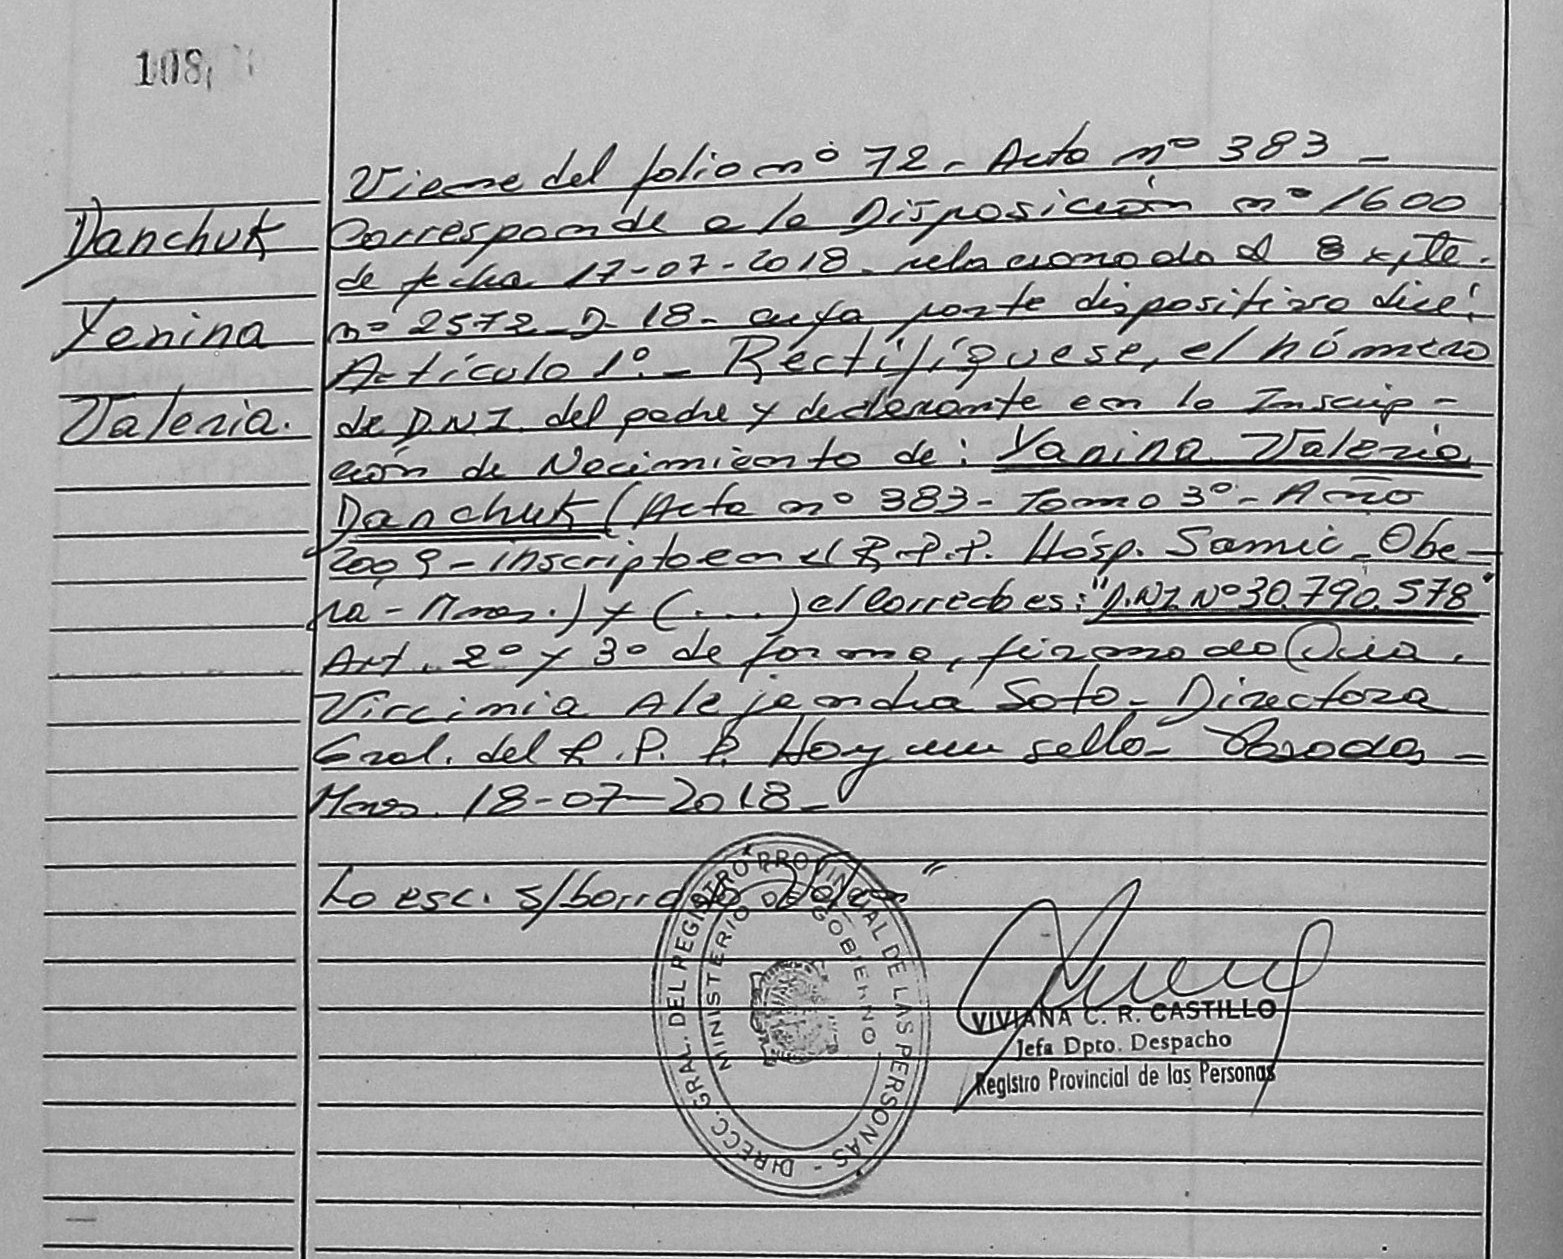 108
Danchuk
Yanina
Valeria.
Viene del folio nº 72 - Acta nº 383 -
Corresponde a la Disposición nº 1600
de fecha 17-07-2018 - relacionada al Expte.
nº 2572-D-18 - cuya parte dispositiva dice:
Artículo 1º - Rectifíquese, el número
de D.N.I. del padre y declarante en la Inscrip-
ción de Nacimiento de: Yanina Valeria
Danchuk (Acta nº 383 - Tomo 3º - Año
2009 - inscripto en el R.P.P. Hosp. Samic - Obe-
rá - Mnes.) y (....) el correcto es: "D.N.I. Nº 30.790.578"
Art. 2º y 3º de forma, firmado Dra.
Vircinia Alejandra Soto - Directora
Gral. del R.P.P. Hay un sello - Posadas -
Mnes. 18-07-2018 -
Lo esc. s/borrado
DIRECC. GRAL. DEL REGISTRO PROVINCIAL DE LAS PERSONAS -
MINISTERIO DE GOBIERNO
VIVIANA C. R. CASTILLO
Jefa Dpto. Despacho
Registro Provincial de las Personas